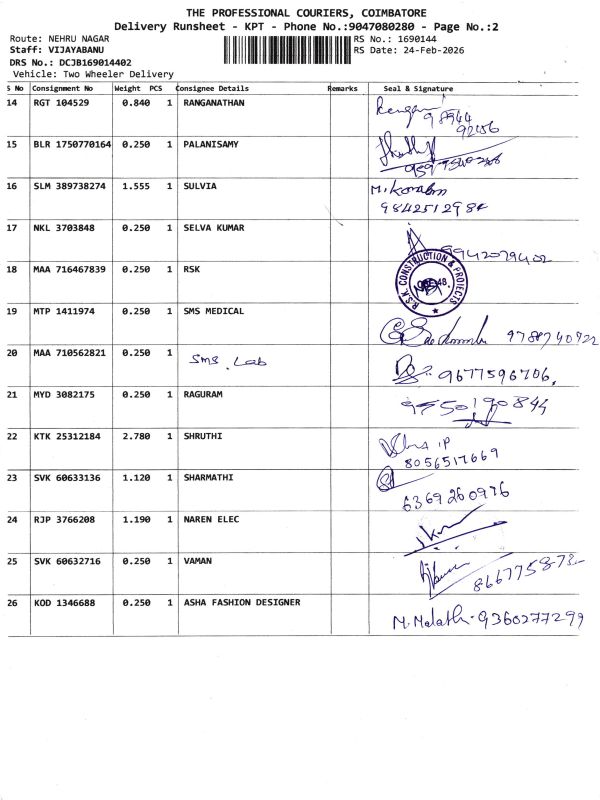 THE PROFESSIONAL COURIERS, COIMBATORE
Delivery Runsheet - KPT - Phone No.:9047080280 - Page No.:2
Route: NEHRU NAGAR
RS No.: 1690144
Staff: VIJAYABANU
RS Date: 24-Feb-2026
DRS No.: DCJB169014402
Vehicle: Two Wheeler Delivery
S No Consignment No Weight PCS Consignee Details Remarks Seal & Signature
14 RGT 104529 0.840 1 RANGANATHAN
98944
92456
15 BLR 1750770164 0.250 1 PALANISAMY
16 SLM 389738274 1.555 1 SULVIA
9842512984
17 NKL 3703848 0.250 1 SELVA KUMAR
9942079402
18 MAA 716467839 0.250 1 RSK
R.S.K. CONSTRUCTION & PROJECTS
19 MTP 1411974 0.250 1 SMS MEDICAL
20 MAA 710562821 0.250 1 SMS. Lab
9677596706.
21 MYD 3082175 0.250 1 RAGURAM
22 KTK 25312184 2.780 1 SHRUTHI
8056517669
23 SVK 60633136 1.120 1 SHARMATHI
6369260976
24 RJP 3766208 1.190 1 NAREN ELEC
25 SVK 60632716 0.250 1 VAMAN
26 KOD 1346688 0.250 1 ASHA FASHION DESIGNER
M. Malathi. 9360277299